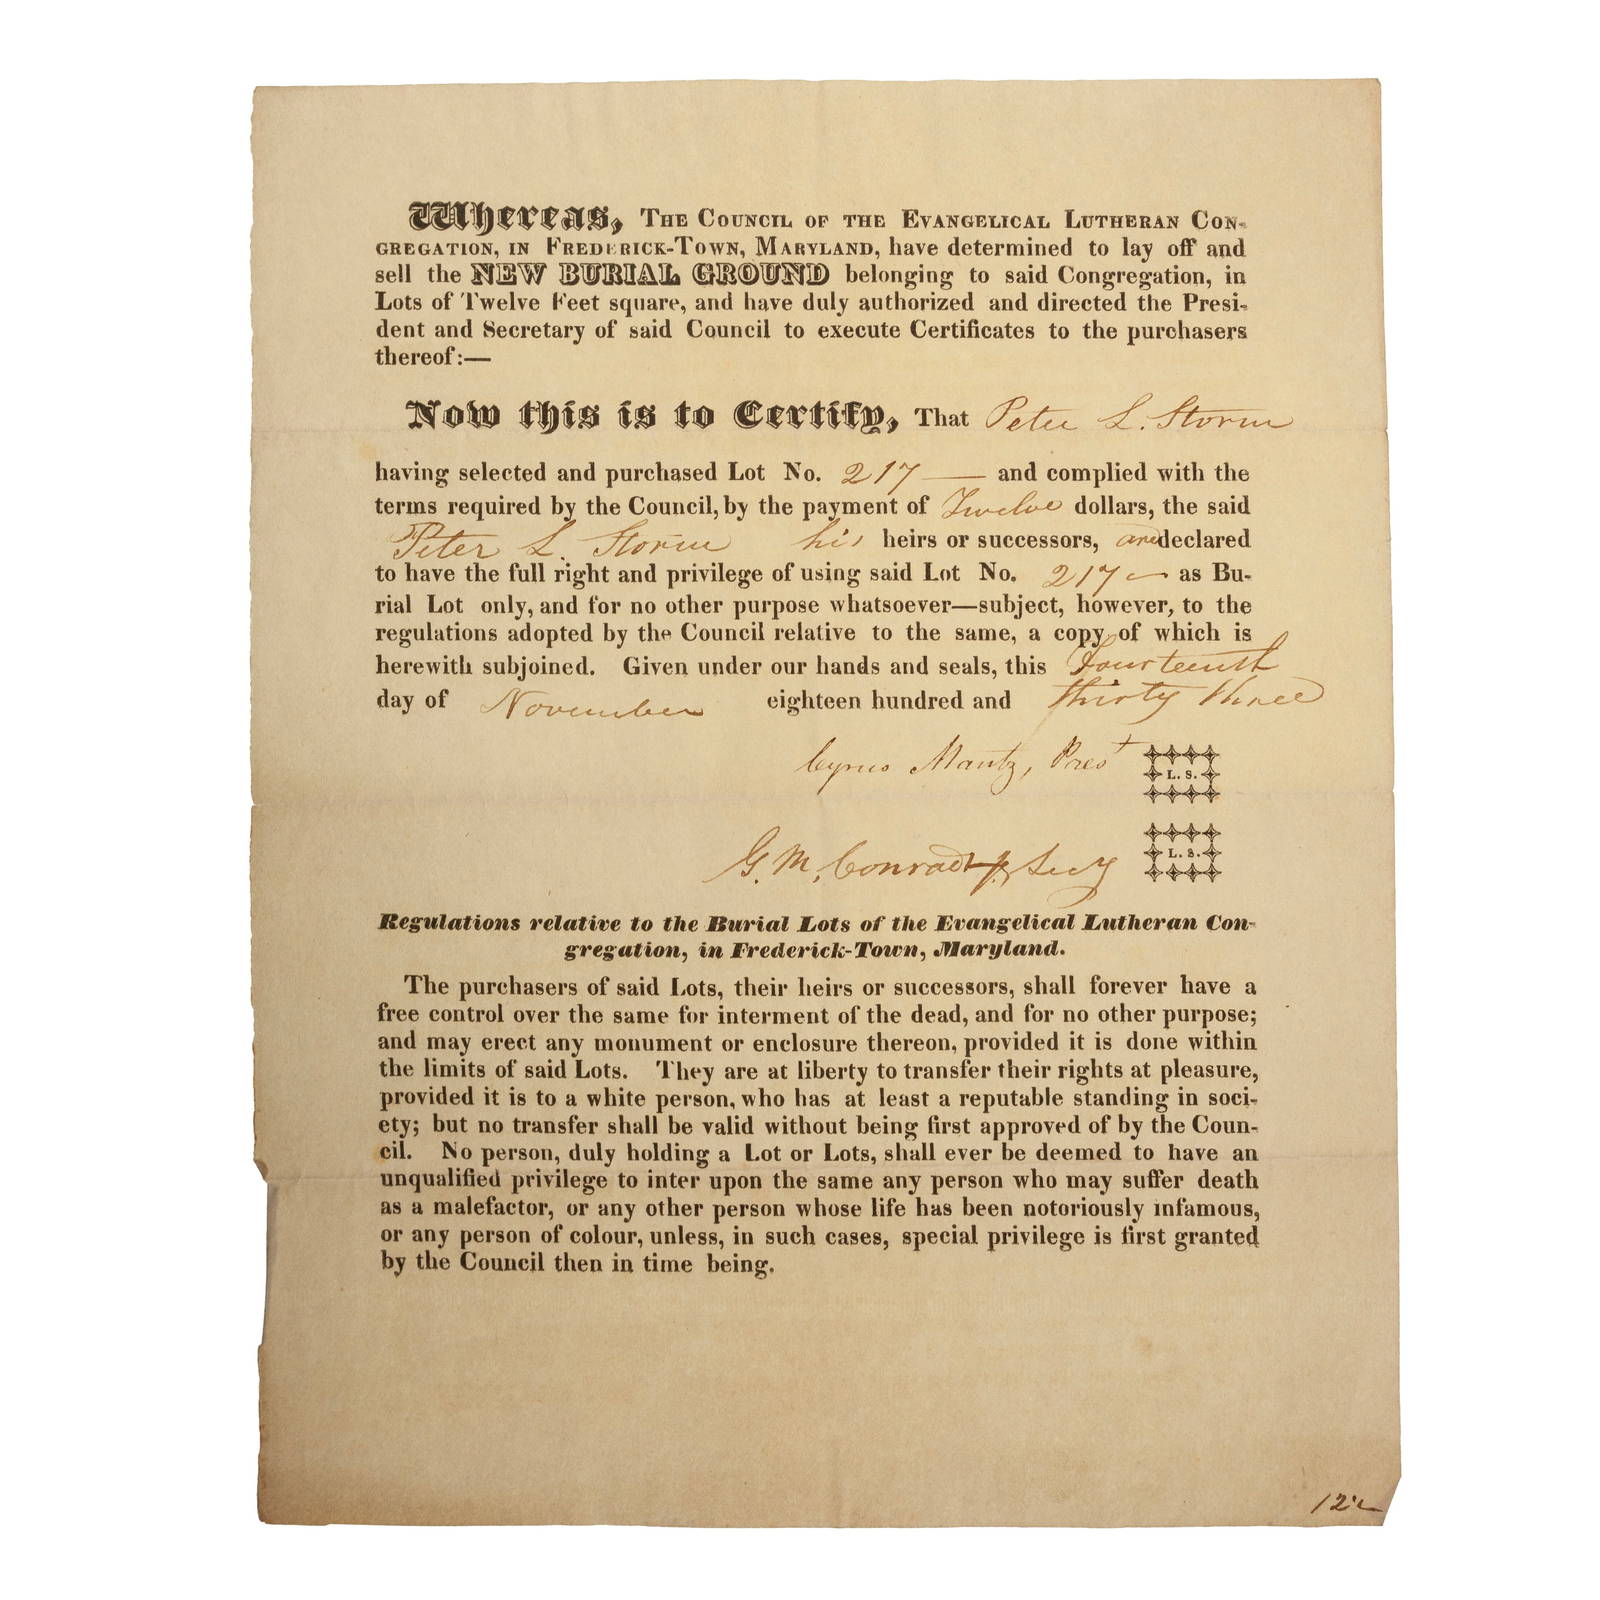 Whereas, THE COUNCIL OF THE EVANGELICAL LUTHERAN CON-
GREGATION, IN FREDERICK-TOWN, MARYLAND, have determined to lay off and
sell the NEW BURIAL GROUND belonging to said Congregation, in
Lots of Twelve Feet square, and have duly authorized and directed the Presi-
dent and Secretary of said Council to execute Certificates to the purchasers
thereof:—
Now this is to Certify, That Peter L. Storm
having selected and purchased Lot No. 217 — and complied with the
terms required by the Council, by the payment of Twelve dollars, the said
Peter L. Storm his heirs or successors, are declared
to have the full right and privilege of using said Lot No. 217 — as Bu-
rial Lot only, and for no other purpose whatsoever—subject, however, to the
regulations adopted by the Council relative to the same, a copy of which is
herewith subjoined. Given under our hands and seals, this Fourteenth
day of November eighteen hundred and thirty three
Cyrus Mantz, Prest L. S.
G. M. Conradt, Secy L. S.
Regulations relative to the Burial Lots of the Evangelical Lutheran Con-
gregation, in Frederick-Town, Maryland.
The purchasers of said Lots, their heirs or successors, shall forever have a
free control over the same for interment of the dead, and for no other purpose;
and may erect any monument or enclosure thereon, provided it is done within
the limits of said Lots. They are at liberty to transfer their rights at pleasure,
provided it is to a white person, who has at least a reputable standing in soci-
ety; but no transfer shall be valid without being first approved of by the Coun-
cil. No person, duly holding a Lot or Lots, shall ever be deemed to have an
unqualified privilege to inter upon the same any person who may suffer death
as a malefactor, or any other person whose life has been notoriously infamous,
or any person of colour, unless, in such cases, special privilege is first granted
by the Council then in time being.